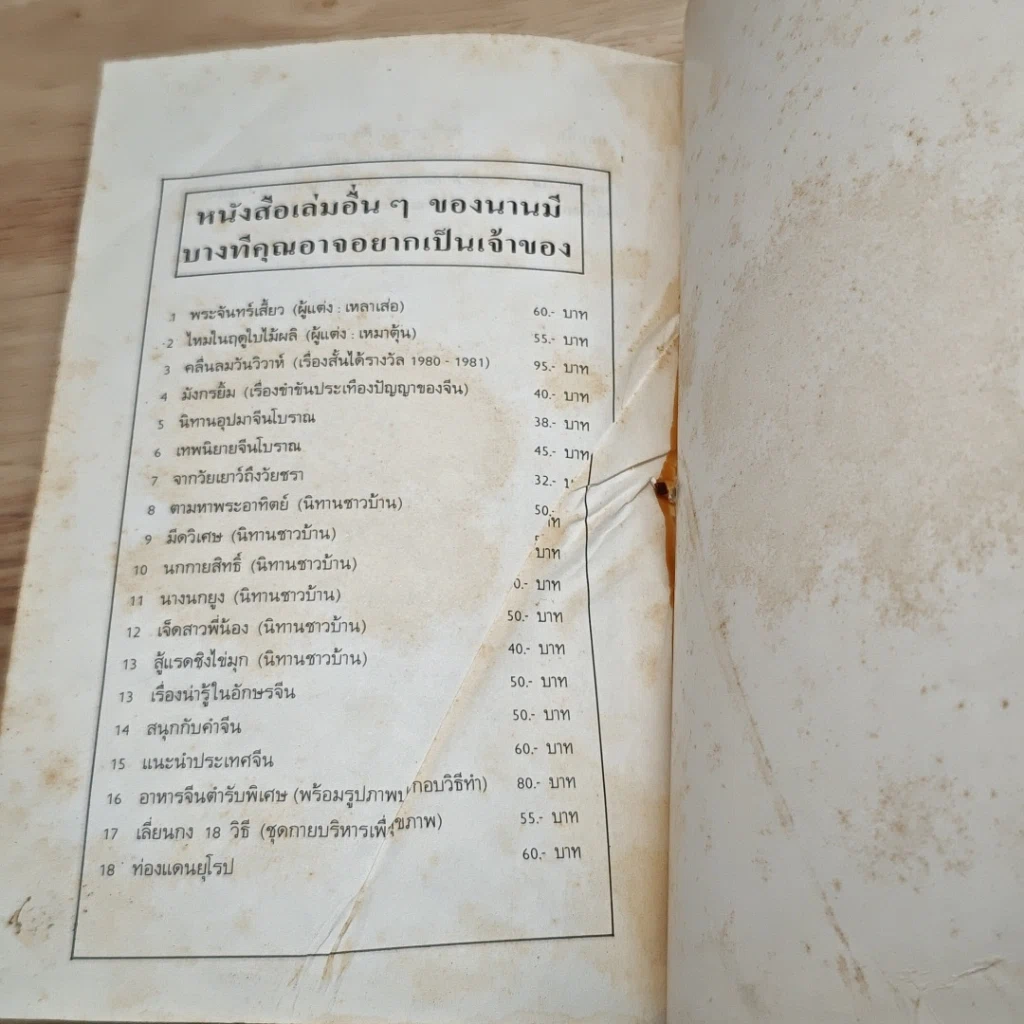 หนังสือเล่มอื่น ๆ ของนานมี
บางทีคุณอาจอยากเป็นเจ้าของ
1 พระจันทร์เสี้ยว (ผู้แต่ง : เหลาเส่อ) 60.- บาท
2 ไหมในฤดูใบไม้ผลิ (ผู้แต่ง : เหมาตุ้น) 55.- บาท
3 คลื่นลมวันวิวาห์ (เรื่องสั้นได้รางวัล 1980 - 1981) 95.- บาท
4 มังกรยิ้ม (เรื่องขำขันประเทืองปัญญาของจีน) 40.- บาท
5 นิทานอุปมาจีนโบราณ 38.- บาท
6 เทพนิยายจีนโบราณ 45.- บาท
7 จากวัยเยาว์ถึงวัยชรา 32.-
8 ตามหาพระอาทิตย์ (นิทานชาวบ้าน) 50.-
9 มีดวิเศษ (นิทานชาวบ้าน)
10 นกกายสิทธิ์ (นิทานชาวบ้าน) บาท
11 นางนกยูง (นิทานชาวบ้าน) บาท
12 เจ็ดสาวพี่น้อง (นิทานชาวบ้าน) 50.- บาท
13 สู้แรดชิงไข่มุก (นิทานชาวบ้าน) 40.- บาท
13 เรื่องน่ารู้ในอักษรจีน 50.- บาท
14 สนุกกับคำจีน 50.- บาท
15 แนะนำประเทศจีน 60.- บาท
16 อาหารจีนตำรับพิเศษ (พร้อมรูปภาพกอบวิธีทำ) 80.- บาท
17 เลี่ยนกง 18 วิธี (ชุดกายบริหารเพื่ขภาพ) 55.- บาท
18 ท่องแดนยุโรป 60.- บาท